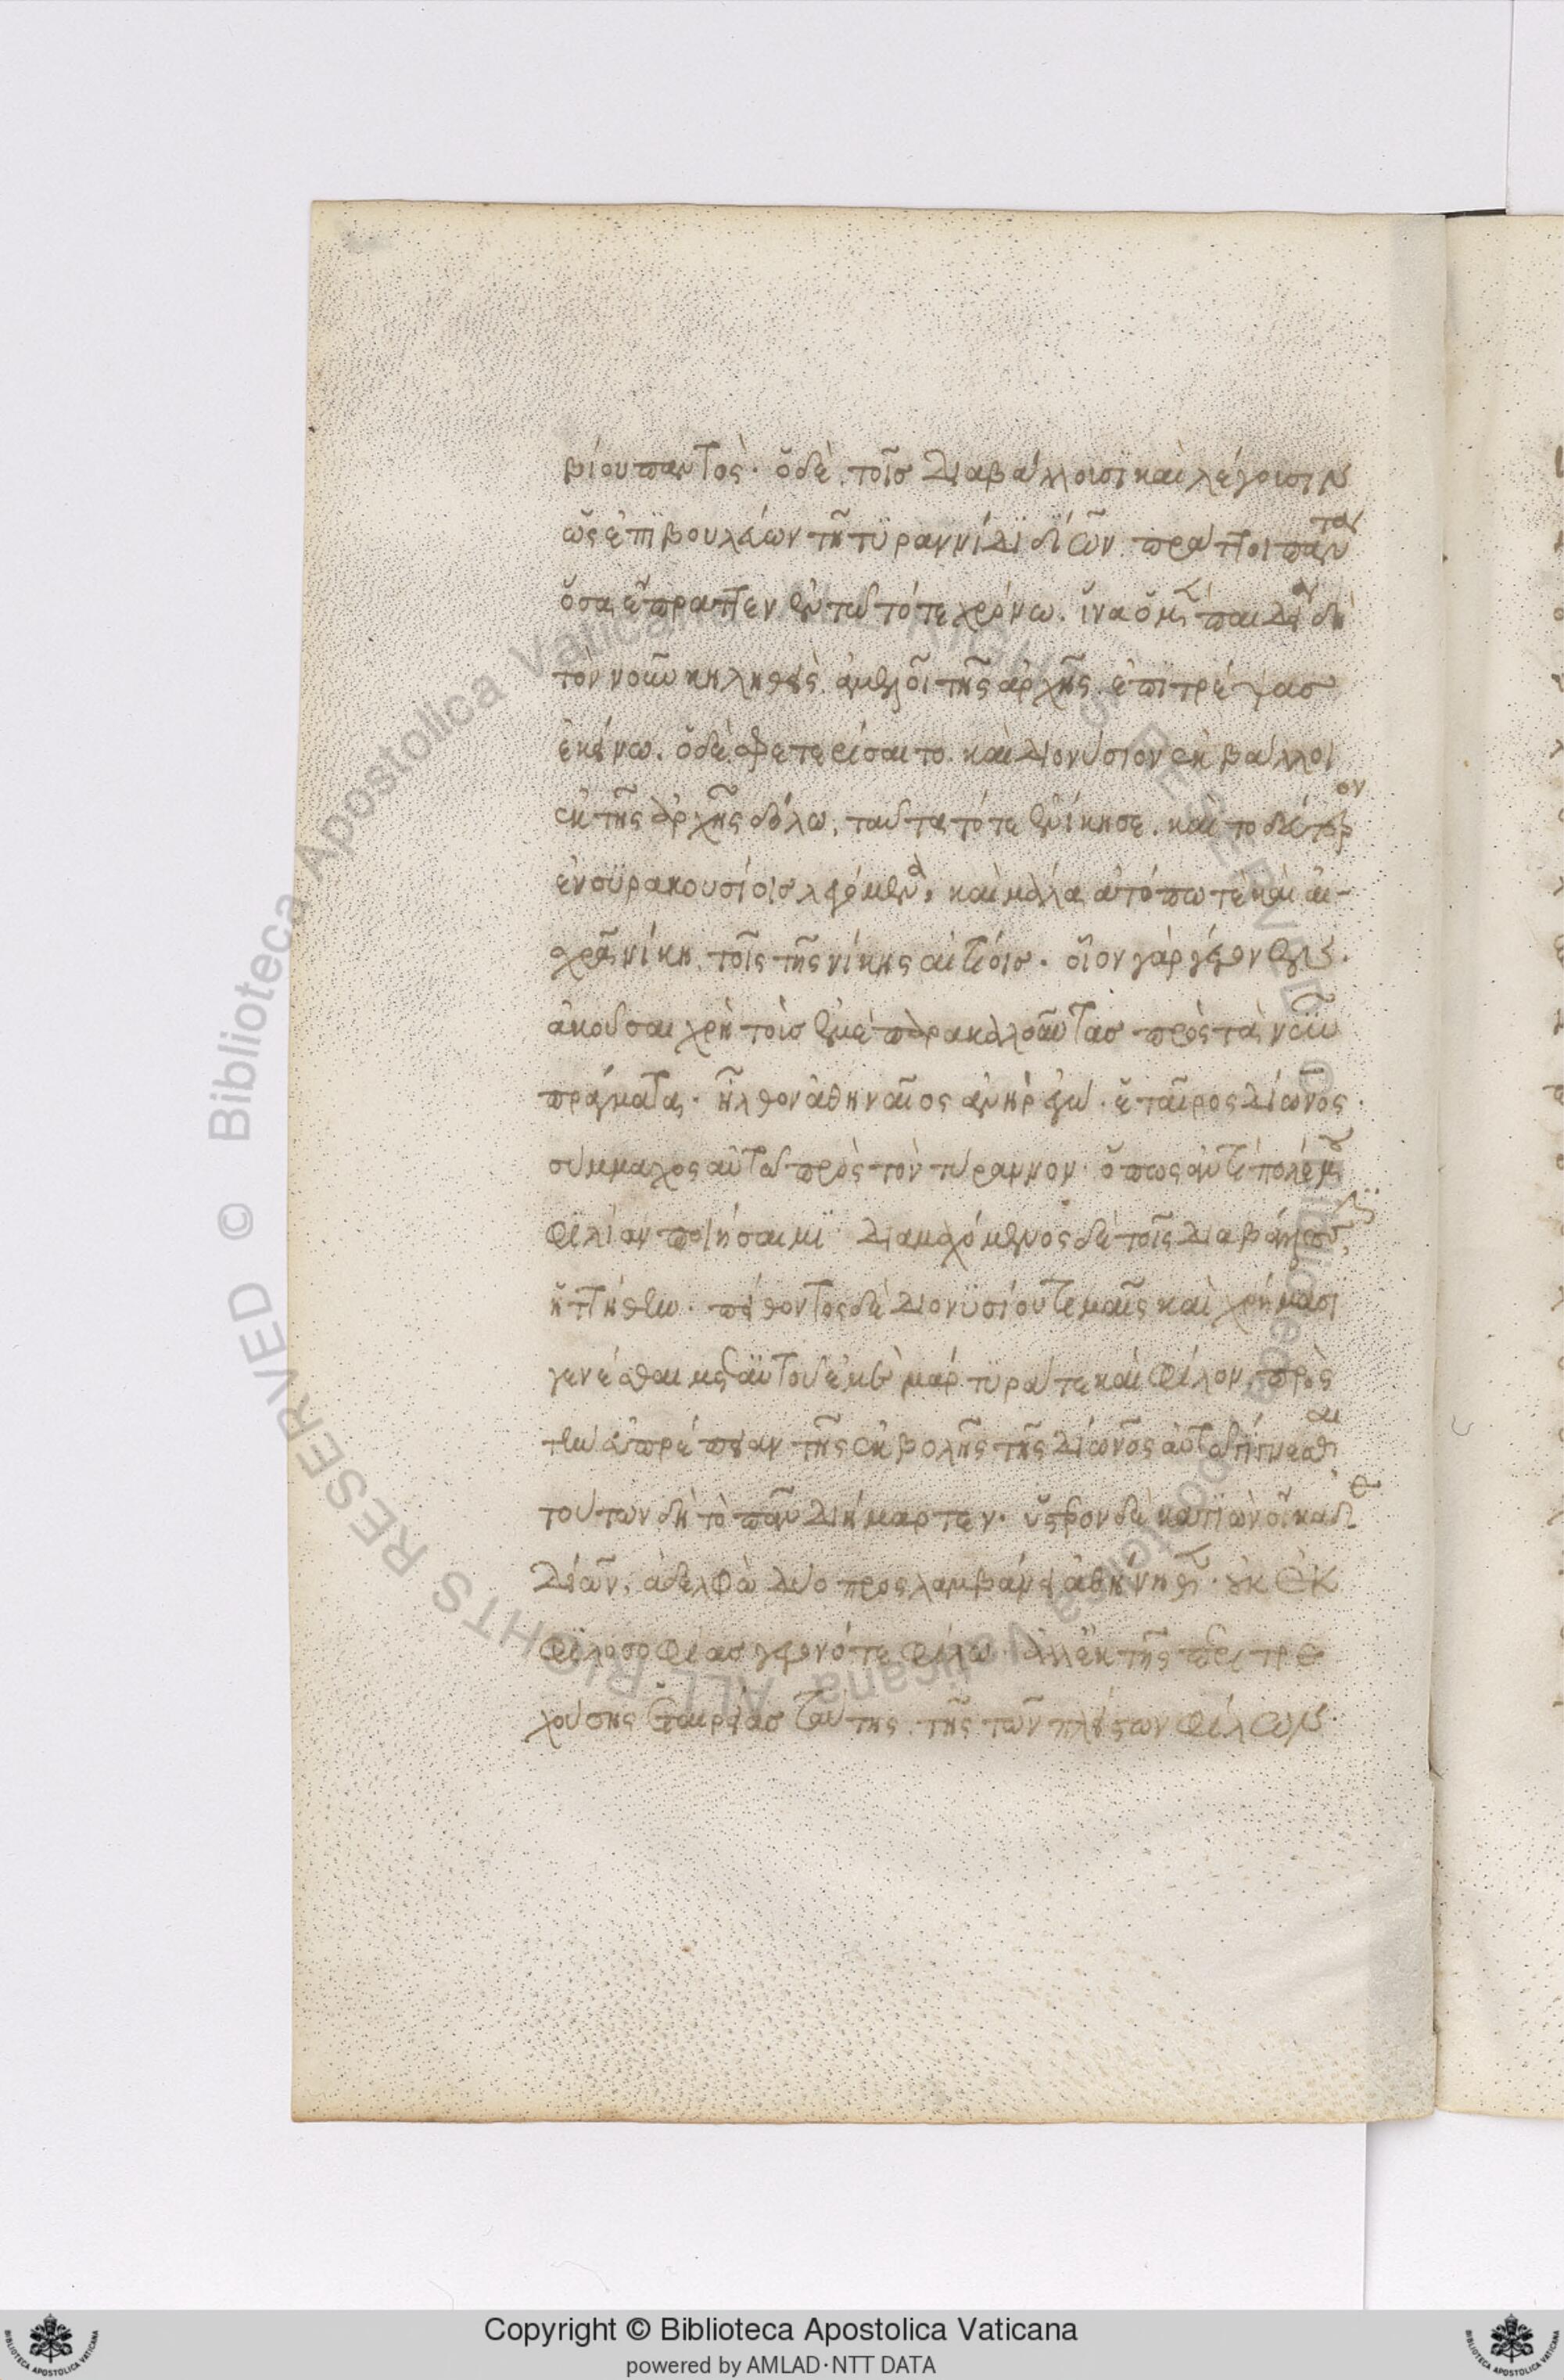 βίου παντὸς· ὁ δὲ τοῖσ διαβάλλουσι καὶ λέγουσιν
ὡς ἐπϊβουλεύων τῆ τϋραννίδϊ δίων πράττοι πάντα
ὅσα ἔπραττεν ἐν τῶ τότε χρόνω. ἵνα ὁ μὲν παιδεία δὴ
τὸν νοῦν κηληθεὶς ἀμελοῖ τῆς ἀρχῆς ἐπιτρέψασ
ἐκείνω. ὁ δὲ σφετερίσαιτο καὶ διονύσιον ἐκβάλλοι
ἐκ τῆς ἀρχῆς δόλω. ταῦτα τότε ἐνίκησε. καὶ τὸ δεύτερον
ἐν σϋρακουσίοισ λεγόμενα, καὶ μάλα ἀτόπω τε καὶ αἰ-
σχρᾶ νίκη τοῖς τῆς νίκης αἰτίοισ. οἷον γὰρ γέγονεν.
ἀκοῦσαι χρὴ τοὺσ ἐμὲ παρακαλοῦντασ πρὸς τὰ νῦν
πράγματα. ἦλθον ἀθηναῖος ἀνὴρ ἐγὼ. ἑταῖρος δίωνος.
σύμμαχος αὐτῶ πρὸς τὸν τύραννον. ὅπως ἀντὶ πολέμου
φϊλίαν ποιήσαιμϊ. διαμαχόμενος δὲ τοῖς διαβάλλουσϊν
ἡττήθην. πείθοντος δὲ διονϋσίου τιμαῖς καὶ χρήμασι
γενέσθαι μετ αὐτοῦ ἐμὲ μάρτϋρά τε καὶ φίλον πρὸς
τὴν εὐπρέπειαν τῆς ἐκβολῆς τῆς δίωνος αὐτῶ γίγνεσθαι
τούτων δὴ τὸ πᾶν διήμαρτεν. ὕστερον δὲ κατϊὼν οἴκαδε
δίων, ἀδελφὼ δύο προςλαμβάνει ἀθήνηθεν. οὐκ ἐκ
φϊλοσοφίασ γεγονότε φίλω. ἀλλ ἐκ τῆς περιτρε
χούσης ἑταιρείασ ταύτης. τῆς τῶν πλείστων φίλων.
Copyright © Biblioteca Apostolica Vaticana
powered by AMLAD·NTT DATA